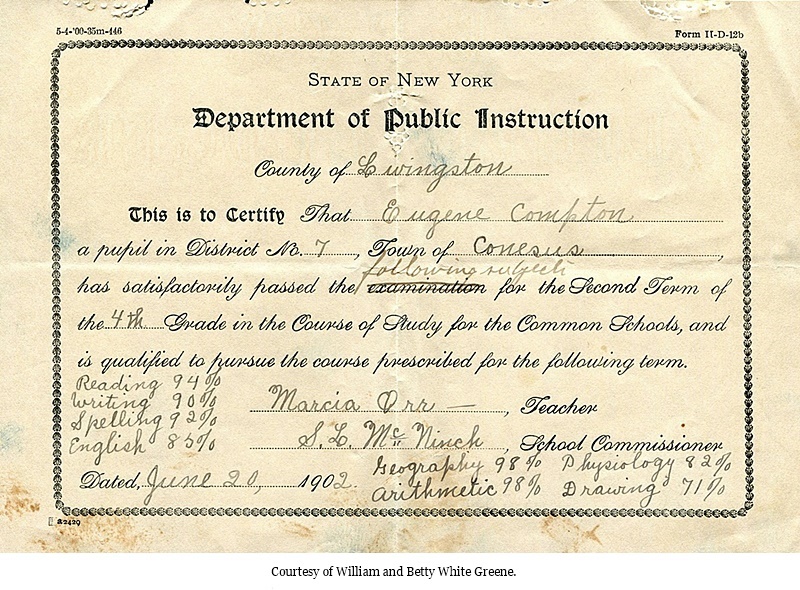 5-4-'00-35m-446
Form II-D-12b
STATE OF NEW YORK
Department of Public Instruction
County of Livingston
This is to Certify That Eugene Compton
a pupil in District No. 7, Town of Conesus,
following subjects
has satisfactorily passed the examination for the Second Term of
the 4th Grade in the Course of Study for the Common Schools, and
is qualified to pursue the course prescribed for the following term.
Reading 94%
Writing 90%
Spelling 92%
English 85%
Marcia Orr —, Teacher
S. L. McNinch, School Commissioner
Geography 98% Physiology 82%
Arithmetic 98% Drawing 71%
Dated, June 20, 1902.
Courtesy of William and Betty White Greene.